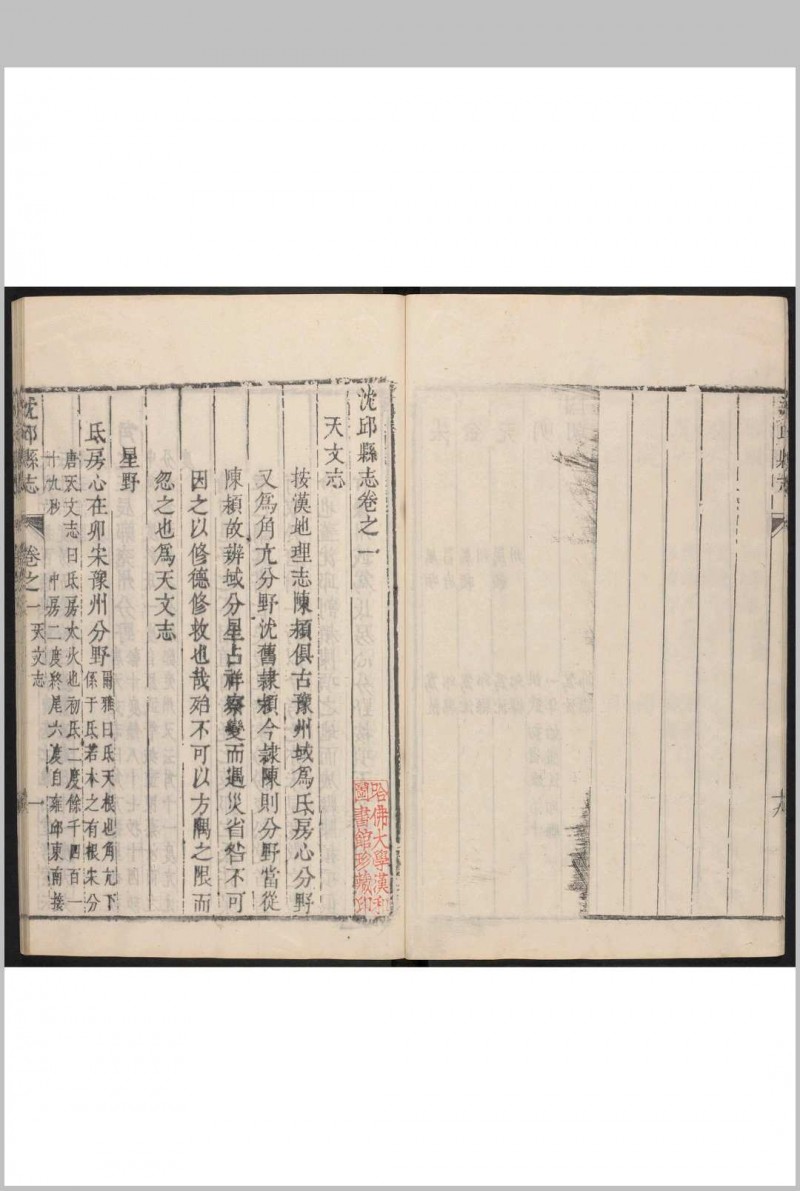 沈邱縣志
沈邱縣志卷之一
天文志
按漢地理志陳潁俱古豫州域爲氐房心分野
又爲角亢分野沈舊隷潁今隷陳則分野當從
陳潁故辨域分星占祥察變而遇災省咎不可
因之以修德修救也哉殆不可以方隅之限而
忽之也爲天文志
星野
氐房心在卯宋豫州分野爾雅曰氐天根也角亢下
係于氐若木之有根宋分
唐天文志曰氐房大火也初氐二度餘千四百一
十九秒中房二度終尾六度自雍邱東南接
沈邱縣志
卷之一
天文志
一
哈佛大學漢和
圖書館珍藏印